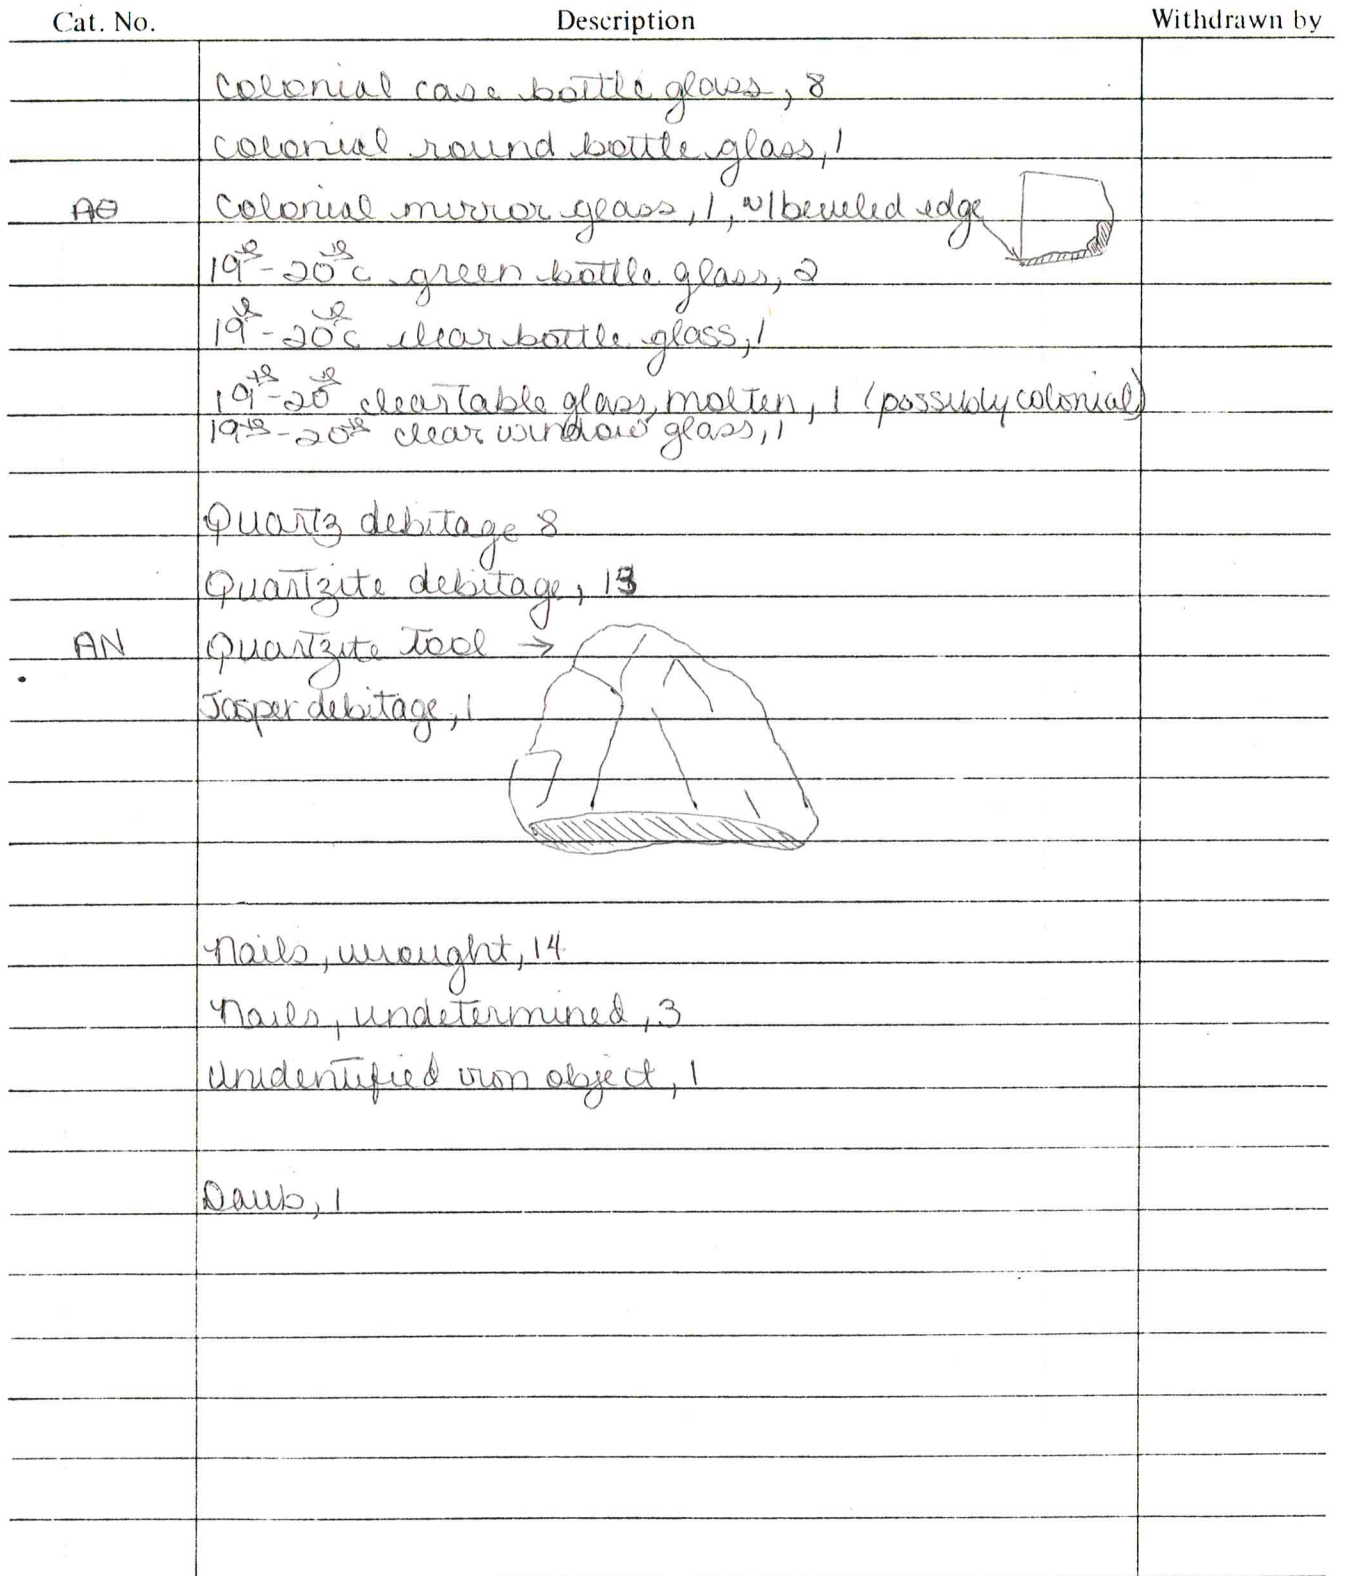 Cat. No. Description Withdrawn by
Colonial case bottle glass, 8
Colonial round bottle glass, 1
AO Colonial mirror glass, 1, w/beveled edge
19th-20th c green bottle glass, 2
19th-20th c clear bottle glass, 1
19th-20th clear table glass, molten, 1 (possibly colonial)
19th-20th clear window glass, 1
Quartz debitage 8
Quartzite debitage,
AN Quartzite Tool →
Jasper debitage, 1
Nails, wrought, 14
Nails, undetermined, 3
Unidentified iron object, 1
Daub, 1